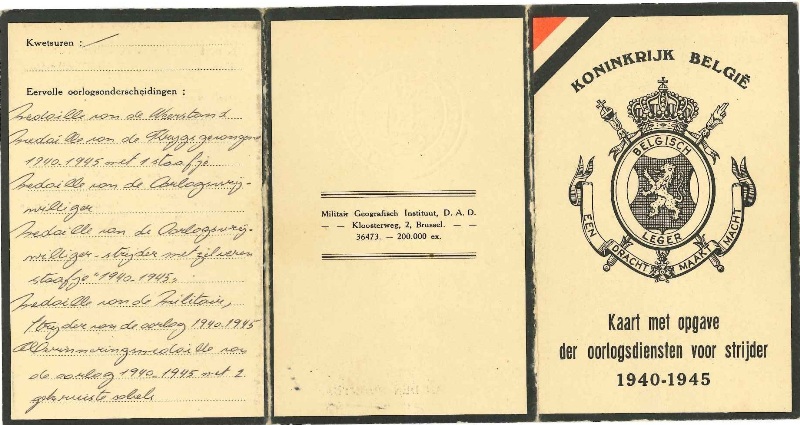 Kwetsuren : /
Eervolle oorlogsonderscheidingen :
Medaille van de Weerstand
Medaille van de Krijgsgevangene
1940-1945 met 1 staafje
Medaille van de Oorlogsvrij-
williger
Medaille van de Oorlogsvrij-
williger-strijder met zilveren
staafje "1940-1945"
Medaille van de Militaire
Strijder van de oorlog 1940-1945
Herinneringsmedaille van
de oorlog 1940-1945 met 2
gekruiste sabels
Militair Geografisch Instituut, D. A. D.
– – Kloosterweg, 2, Brussel. – –
36473. — 200.000 ex.
KONINKRIJK BELGIË
BELGISCH
LEGER
EENDRACHT MAAKT MACHT
Kaart met opgave
der oorlogsdiensten voor strijder
1940-1945